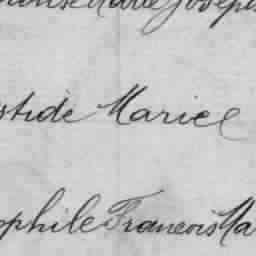 Marie Joseph
stide Marie
ophile Francois Ma